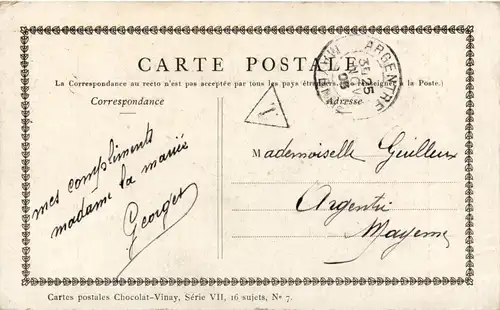 CARTE POSTALE
La Correspondance au recto n'est pas acceptée par tous les pays étrangers. (Se renseigner à la Poste.)
Correspondance
Adresse
ARGENTRÉ
MAYENNE
3E 25
NOV
05
T
mes compliments
madame la mariée
Georget
Mademoiselle Guilleux
Argentré
Mayenne
Cartes postales Chocolat-Vinay, Série VII, 16 sujets, Nº 7.